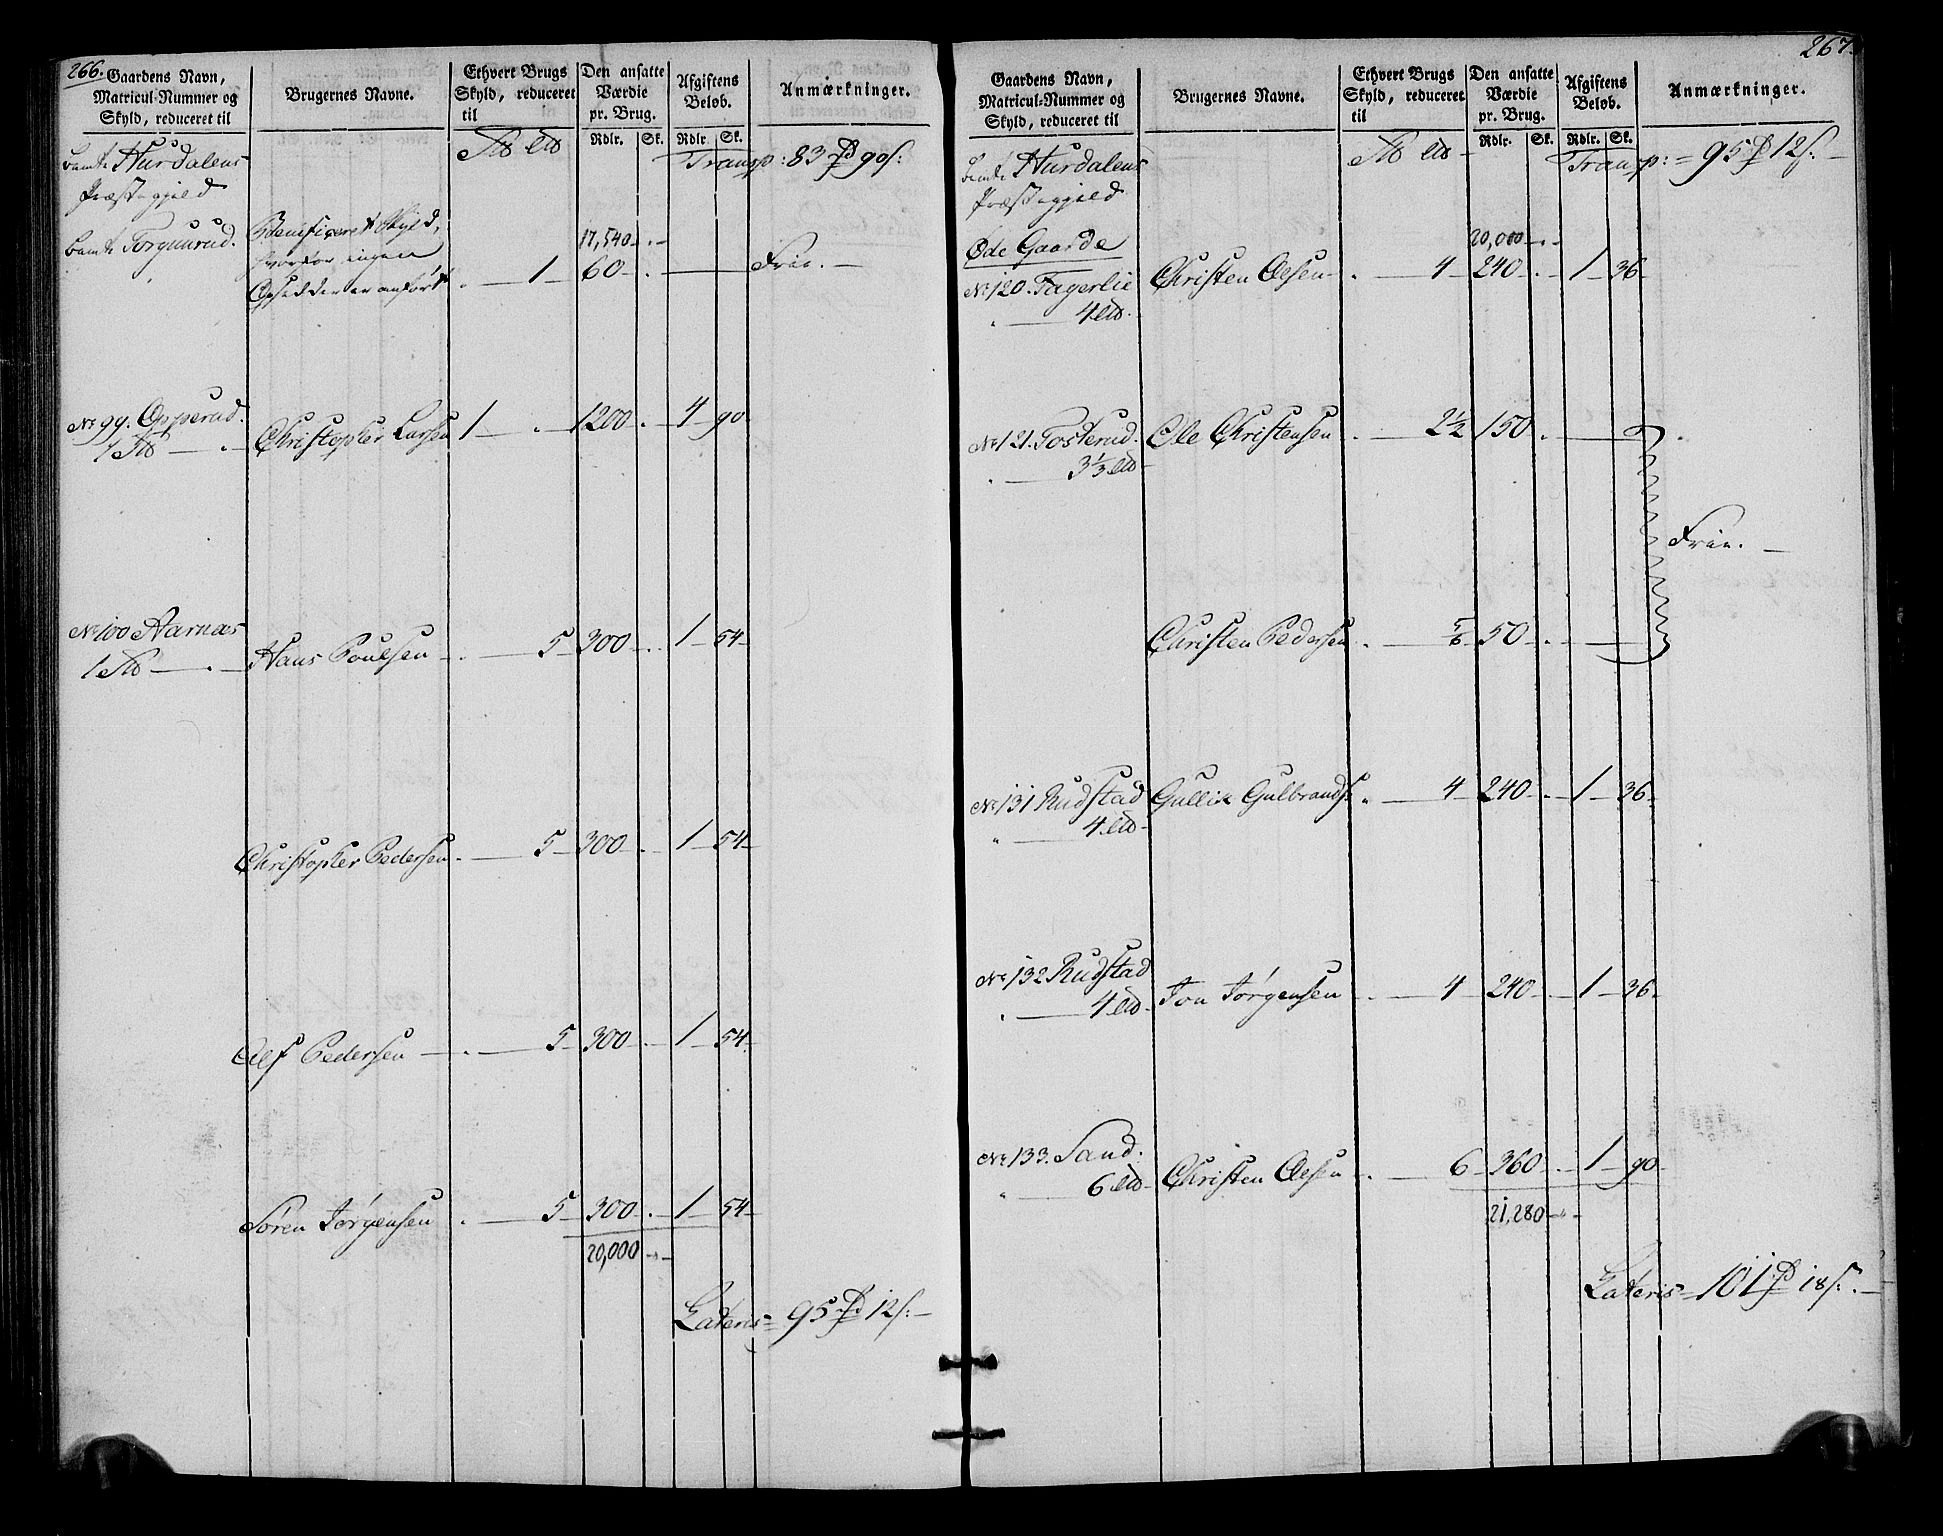 266.
Gaardens Navn,
Matricul-Nummer og
Skyld, reduceret til
Brugernes Navne.
Ethvert Brugs
Skyld, reduceret
til
Den ansatte
Værdie
pr. Brug.
Rdlr. Sk.
Afgiftens
Beløb.
Rdlr. Sk.
Anmærkninger.
Hurdalens
Præstegjeld
Transp: 83 90 s:
Beneficeret Skyld,
hvorfor ingen
Opsidder er anført . 1 60 . Frie.
17,540
No 99. Opperud.
1
Christopher Larsen 1 . 1200 . 4 90
No 100 Aarnæs
1
Hans Poulsen . 5 300 . 1 54
Christopher Pedersen . 5 300 . 1 54
Alf Pedersen . 5 300 . 1 54
Søren Jørgensen . 5 300 . 1 54
20,000
Lateris = 95 12 s:
267.
Gaardens Navn,
Matricul-Nummer og
Skyld, reduceret til
Brugernes Navne.
Ethvert Brugs
Skyld, reduceret
til
Den ansatte
Værdie
pr. Brug.
Rdlr. Sk.
Afgiftens
Beløb.
Rdlr. Sk.
Anmærkninger.
Hurdalens
Præstegjeld
Transp: = 95 12 s:
Øde Gaarde
20,000
No 120. Fagerlie Christen Olsen . 4 240 . 1 36
4
No 121. Tosterud. Ole Christensen . 2½ 150 .
3⅓
Frie.
Christen Pedersen . ⅚ 50 .
No 131 Rudstad Gullik Gulbrands: . 4 240 . 1 36
4
No 132 Rudstad Jon Jørgensen . 4 240 . 1 36
4
No 133. Sand. Christen Olsen . 6 360 . 1 90
6
21,280
Lateris = 101 18 s: